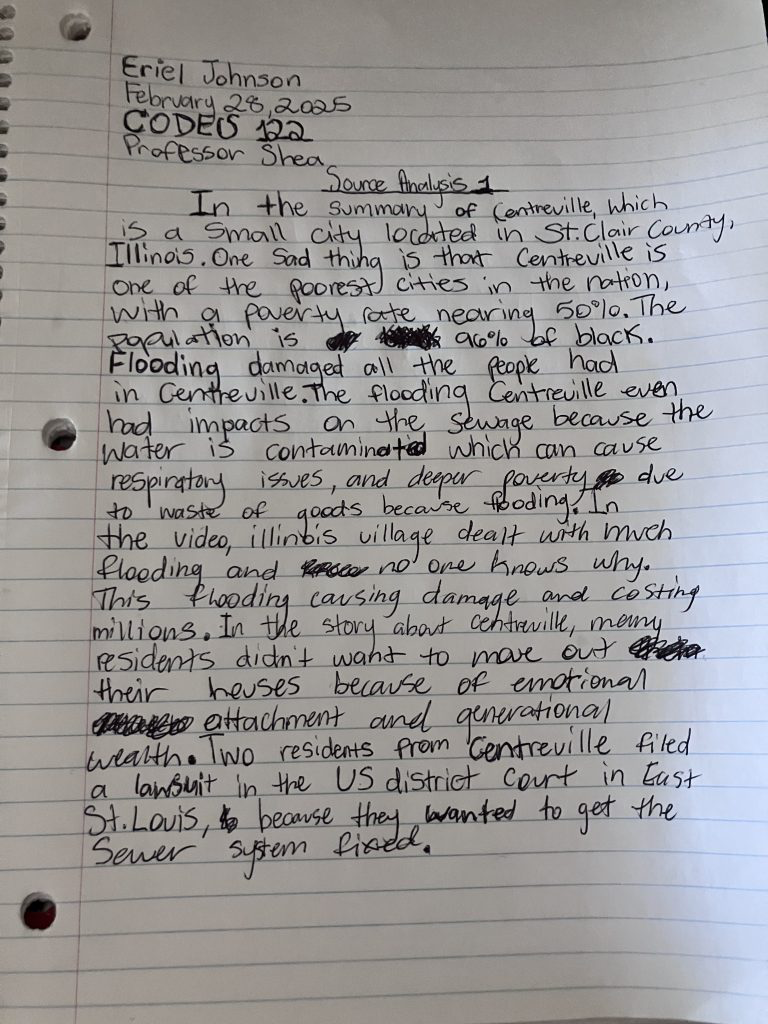 Eriel Johnson
February 28, 2025
CODES 122
Professor Shea
Source Analysis 1
In the summary of Centreville, which
is a small city located in St. Clair County,
Illinois. One sad thing is that Centreville is
one of the poorest cities in the nation,
with a poverty rate nearing 50%. The
population is 96% of black.
Flooding damaged all the people had
in Centreville. The flooding Centreville even
had impacts on the sewage because the
water is contaminated which can cause
respiratory issues, and deeper poverty due
to waste of goods because flooding. In
the video, illinois village dealt with much
flooding and no one knows why.
This flooding causing damage and costing
millions. In the story about Centreville, many
residents didn't want to move out
their houses because of emotional
attachment and generational
wealth. Two residents from Centreville filed
a lawsuit in the US district Court in East
St. Louis, because they wanted to get the
Sewer system fixed.